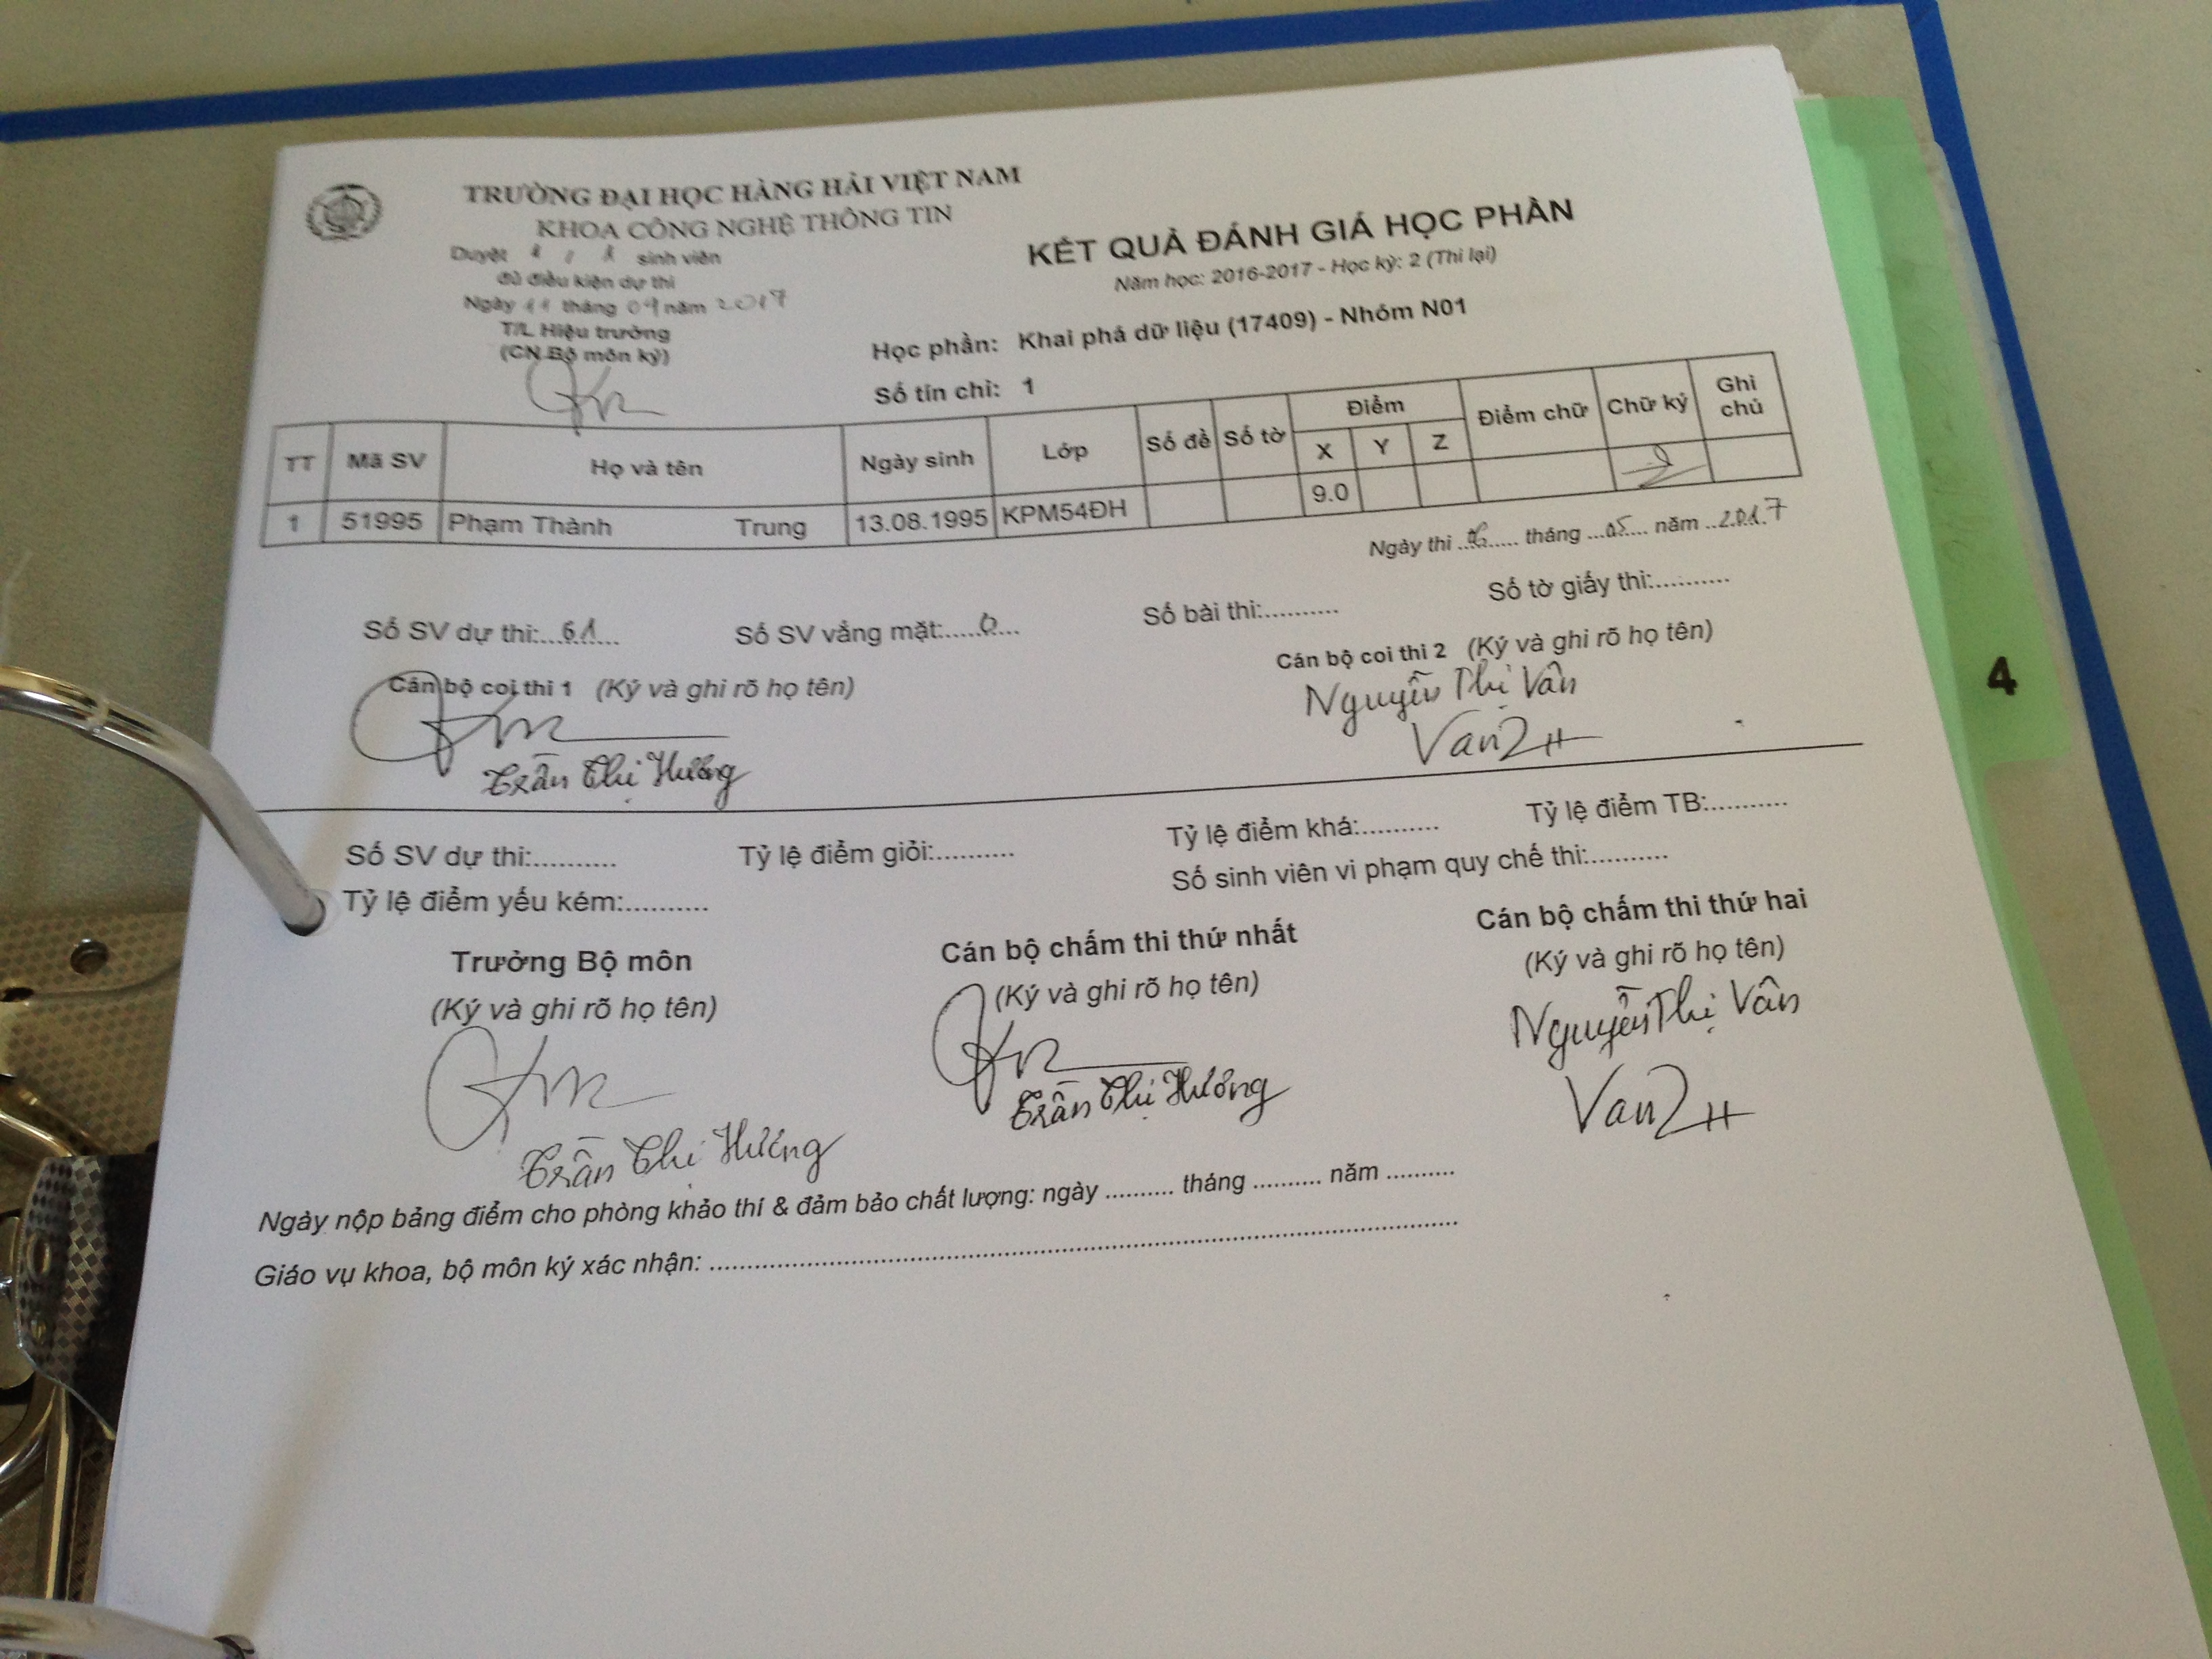 TRƯỜNG ĐẠI HỌC HÀNG HẢI VIỆT NAM
KHOA CÔNG NGHỆ THÔNG TIN
Duyệt 1 / 1 sinh viên
đủ điều kiện dự thi
Ngày 11 tháng 04 năm 2017
T/L Hiệu trưởng
(CN Bộ môn ký)
KẾT QUẢ ĐÁNH GIÁ HỌC PHẦN
Năm học: 2016-2017 - Học kỳ: 2 (Thi lại)
Học phần: Khai phá dữ liệu (17409) - Nhóm N01
Số tín chỉ: 1
TT Mã SV Họ và tên Ngày sinh Lớp Số đề Số tờ Điểm Điểm chữ Chữ ký Ghi chú
X Y Z
1 51995 Phạm Thành Trung 13.08.1995 KPM54ĐH 9.0
Ngày thi ........ tháng ...05.... năm ..2017
Số SV dự thi:...61...... Số SV vắng mặt:.....0.... Số bài thi:.......... Số tờ giấy thi:..........
Cán bộ coi thi 1 (Ký và ghi rõ họ tên) Cán bộ coi thi 2 (Ký và ghi rõ họ tên)
Trần Thị Hương
Nguyễn Thị Vân
Van
Số SV dự thi:.......... Tỷ lệ điểm giỏi:.......... Tỷ lệ điểm khá:.......... Tỷ lệ điểm TB:..........
Tỷ lệ điểm yếu kém:.......... Số sinh viên vi phạm quy chế thi:..........
Trưởng Bộ môn Cán bộ chấm thi thứ nhất Cán bộ chấm thi thứ hai
(Ký và ghi rõ họ tên) (Ký và ghi rõ họ tên) (Ký và ghi rõ họ tên)
Trần Thị Hương Trần Thị Hương Nguyễn Thị Vân
Van
Ngày nộp bảng điểm cho phòng khảo thí & đảm bảo chất lượng: ngày .......... tháng .......... năm ..........
Giáo vụ khoa, bộ môn ký xác nhận: ..........
4